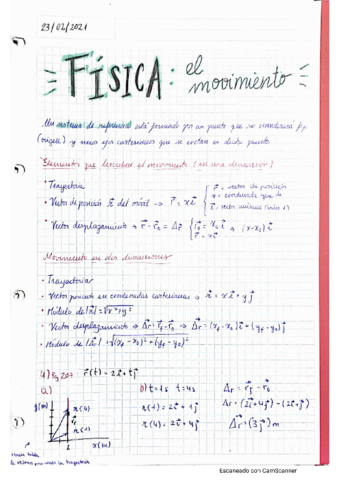 23/02/2021
FÍSICA: el movimiento
Un sistema de referencia está formado por un punto que se considerará fijo
(origen) y unos ejes cartesianos que se cortan en dicho punto
Elementos que describen el movimiento (en una dimensión)
• Trayectoria
• Vector de posición r⃗ del móvil → r⃗ = x i⃗ { r⃗ = vector de posición
i⃗ = vector unitario
• Vector desplazamiento → r⃗ - r⃗₀ = Δr⃗ { r⃗₀ = x₀ i⃗
r⃗ = x i⃗ } (x-x₀) i⃗
Movimiento en dos dimensiones
• Trayectorias
• Vector posición en coordenadas cartesianas → r⃗ = x i⃗ + y j⃗
• Módulo de |r⃗| = √x²+y²
• Vector desplazamiento → Δr⃗ = r⃗f - r⃗₀ → Δr⃗ = (xf - x₀) i⃗ + (yf - y₀) j⃗
• Módulo de |Δr⃗| = √(xf - x₀)² + (yf - y₀)²
r⃗(t) = 2 i⃗ + t j⃗
a)
b) t = 1s t = 4s
r(1) = 2 i⃗ + 1 j⃗
r(4) = 2 i⃗ + 4 j⃗
Δr = r⃗f - r⃗₀
Δr = (2 i⃗ + 4 j⃗) - (2 i⃗ + j⃗)
Δr⃗ = (3 j⃗) m
y(m)
r(4)
r(1)
2
x(m)
Escaneado con CamScanner